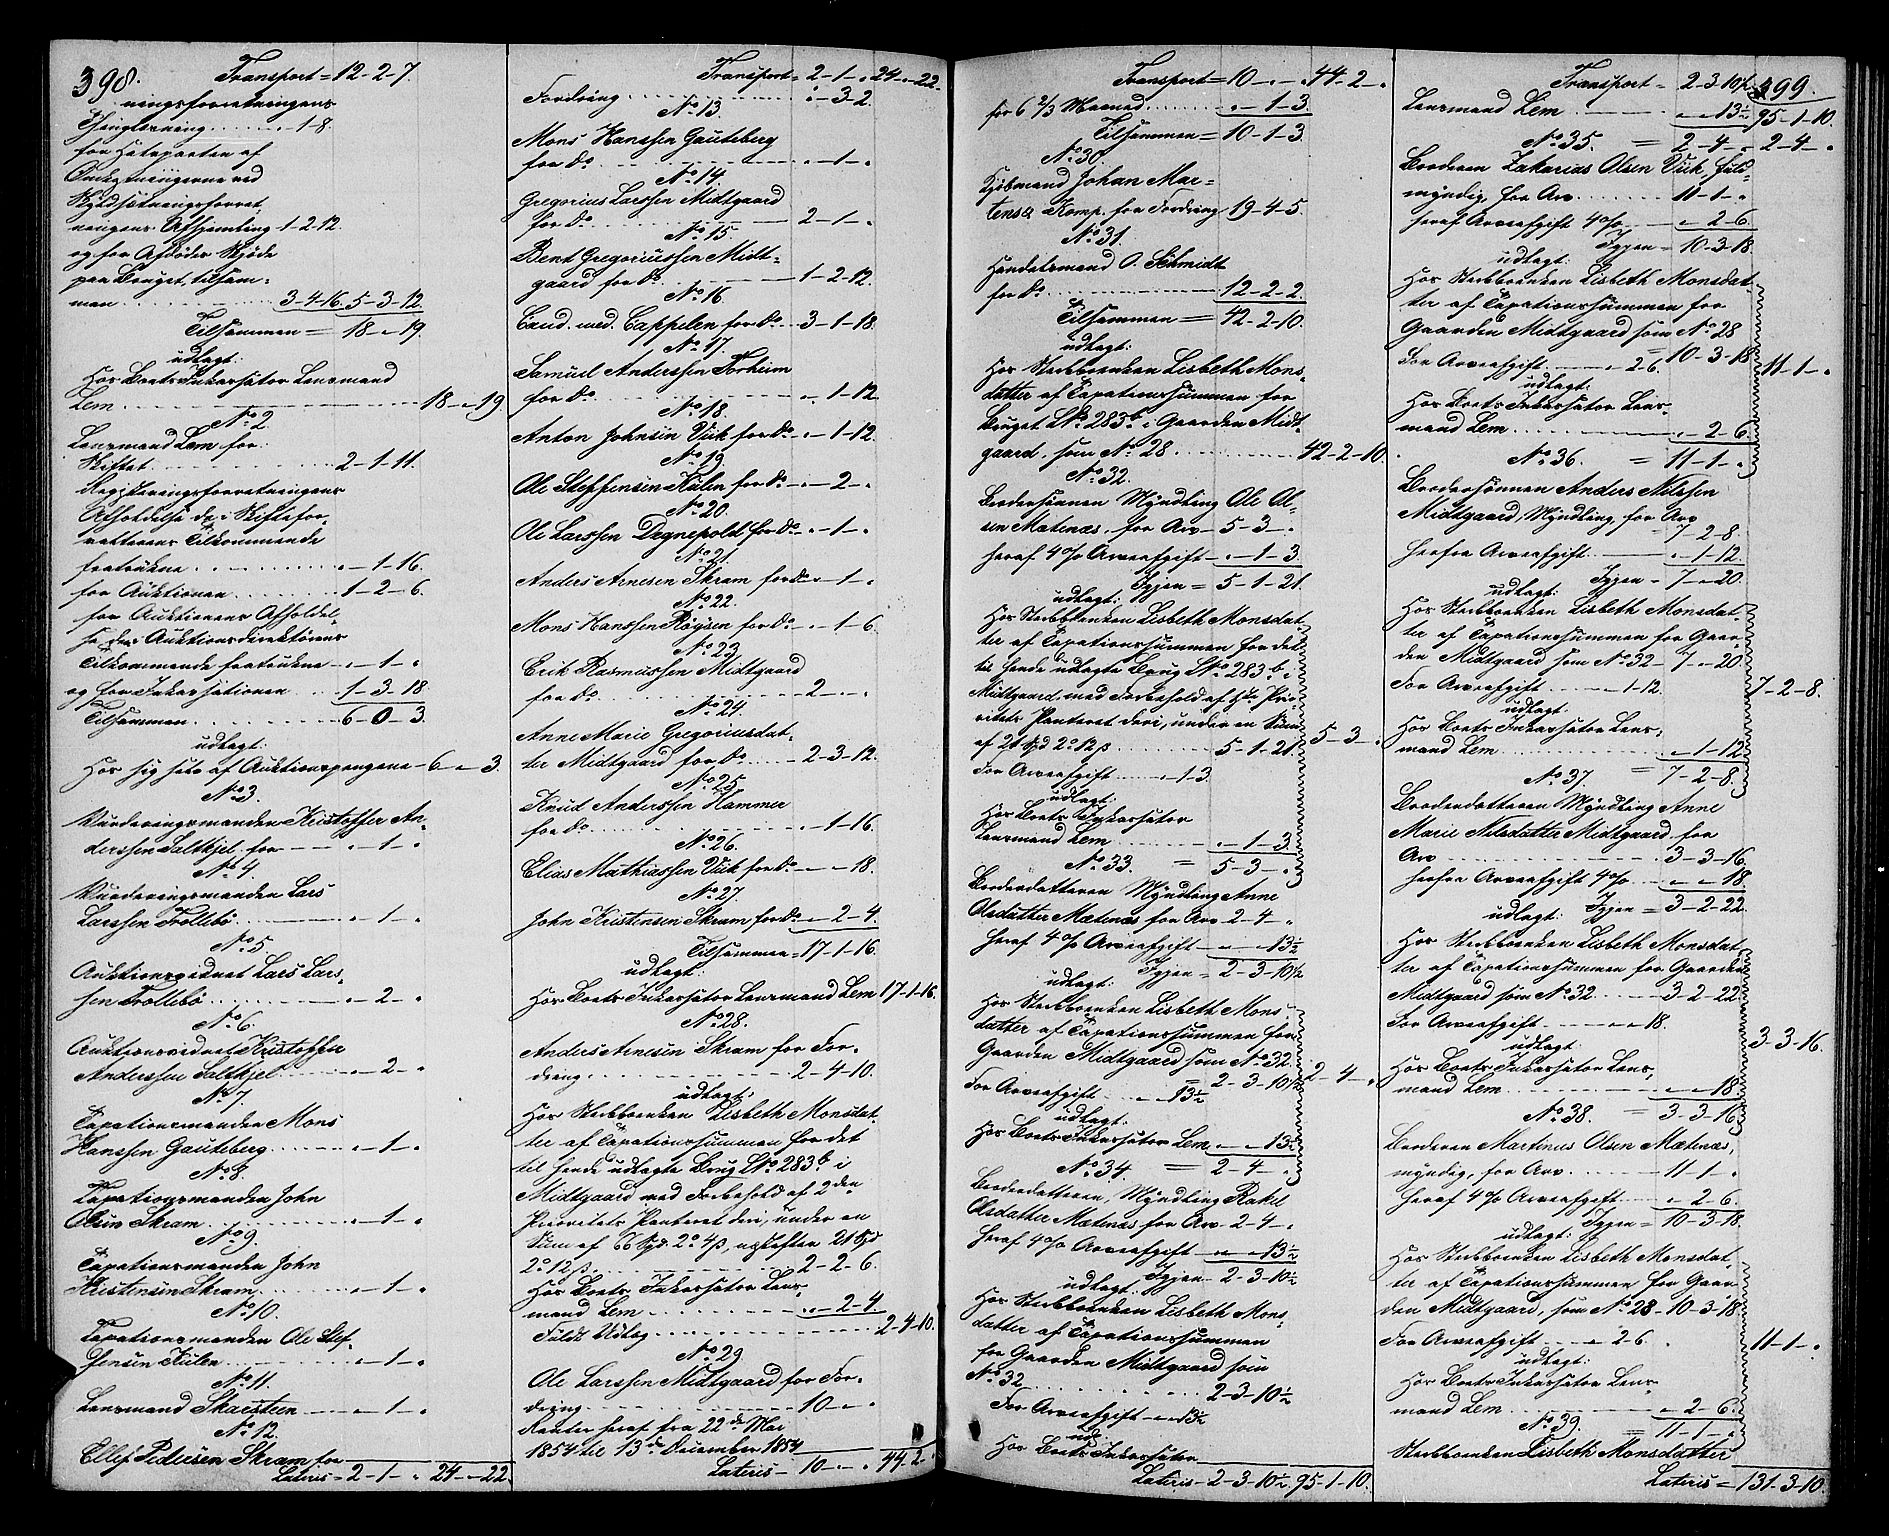 398.
Transport = 12-2-7.
ningsforretningens
Thinglæsning ...... " - 1-8.
for Halvparten af
Omkostningerne ved
Skyldsætningsforret,
ningens Afhjemling 1-2-12.
og for Afdødes Skjøde
paa Bruget, tilsam=
men ...... 3-4-16. 5-3-12.
Tilsammen = 18 - " - 19.
udlagt:
Hos Boets Inkassator Lensmand
Lem ...... 18 - " - 19.
No 2.
Lensmand Lem for
Skiftet ...... 2-1-11.
Registreringsforretningens
Afholdelse det i Skiftefor,
retterens Tilkommende
fratrukne ...... " - 1-16.
for Auktionen ...... 1-2-6.
for Auktionens Afholdel=
se den Auktionsdirektørens
Tilkommende fratrukne - " - 1 - "
og for Inkassationen ... 1-3-18
Tilsammen ...... 6-0-3.
udlagt:
Hos sig selv af Auktionspengene - 6 - " - 3.
No 3.
Vurderingsmanden Kristoffer An,
derssen Saltkjel for ...... " - 1 - "
No 4.
Vurderingsmanden Lars
Larssen Trollebø ...... " - 1 - "
No 5
Auktionsvidnet Lars Lars,
sen Trollebø ...... " - 2 - "
No 6.
Auktionsvidnet Kristoffer
Anderssen Saltkjel ...... " - 2 - "
No 7.
Taxationsmanden Mons
Hanssen Gauteberg ...... " - 1 - "
No 8.
Taxationsmanden John
Olsen Skram ...... " - 1 - "
No 9.
Taxationsmanden John
Kristensen Skram ...... " - 1 - "
No 10.
Taxationsmanden Ole Stef,
fensen Kulen ...... " - 1 - "
No 11.
Lensmand Skarsteen ...... " - 1 - "
No 12.
Ellef Pedersen Skram for
Lateris = 2-1 - " 24 - " - 22.
Transport = 2-1 - " - 24 - " - 22.
Fordring ...... " - 3-2.
No 13.
Mons Hanssen Gauteberg
for do ...... " - 1 - "
No 14.
Gregorius Larssen Midtgaard
for do ...... 2-1 - "
No 15.
Bent Gregoriussen Midt=
gaard for do ...... 1-2-12.
No 16.
Cand. med. Cappelen for do ... 3-1-18.
No 17.
Samuel Anderssen Torheim
for do ...... " - 1-12.
No 18.
Anton Johnsen Viik for do - " - 1-12.
No 19.
Ole Steffensen Kulen for do - " - 2 - "
No 20.
Ole Larssen Degnepold for do - " - 1 - "
No 21.
Anders Arnesen Skram for do - " - 1 - "
No 22.
Mons Hanssen Røysen for do - " - 1-6.
No 23.
Erik Rasmussen Midtgaard
for do ...... 2 - " - "
No 24.
Anne Marie Gregoriusdat,
ter Midtgaard for do ...... 2-3-12.
No 25.
Knud Anderssen Hammer
for do ...... " - 1-16.
No 26.
Elias Mathiassen Viik for do - " - " - 18.
No 27.
John Kristensen Skram for do - " - 2-4.
Tilsammen = 17-1-16.
udlagt:
Hos Boets Inkassator Lensmand Lem 17-1-16.
No 28.
Anders Arnesen Skram for For=
dring ...... 2-4-10.
udlagt:
Hos Stervboenken Lisbeth Monsdat,
ter af Taxationssummen for det
til hende udlagte Brug L No 283 b i
Midtgaard med Forbehold af 2den
Prioritets Panteret deri, under en
Sum af 66 Spd 2 o 4 ß, næstefter 21 Spd
2 o 12 ß ...... 2-2-6.
Hos Boets Inkassator Lens,
mand Lem ...... " - 2-4
Fuldt Udlæg ...... 2-4-10.
No 29.
Ole Larssen Midtgaard for For,
dring ...... 10 - " - "
Renter heraf fra 22de Mai
1854 til 13de December 1854
Lateris - 10 - " - " 44-2 - "
Transport = 10 - " - " 44-2 - "
for 6 2/3 Maaned ...... " - 1-3
Tilsammen = 10-1-3.
No 30.
Kjøbmand Johan Mar=
tens & Komp. for Fordring 19-4-5.
No 31.
Handelsmand O. Schmidt
for do ...... 12-2-2
Tilsammen = 42-2-10.
udlagt:
Hos Stervboenken Lisbeth Mons,
datter af Taxationssummen for
Bruget L No 283 b i Gaarden Midt,
gaard, som No 28 ...... 42-2-10.
No 32.
Brodersønnen Myndling Ole Ol=
sen Mætenæs, for Arv - 5-3 - "
heraf 4 % Arveafgift - " - 1-3.
Igjen = 5-1-21.
udlagt:
Hos Stervboenken Lisbeth Monsdat,
ter af Taxationssummen for det
til hende udlagte Brug L No 283 b i
Midtgaard med Forbehold af 1ste Prio=
ritets Panteret deri, under en Sum
af 21 Spd 2 o 12 ß ...... 5-1-21.
For Arveafgift ...... " - 1-3.
udlagt:
Hos Boets Inkassator
Lensmand Lem ...... " - 1-3
5-3 - "
No 33. = 5-3 - "
Broderdatteren Myndling Anne
Olsdatter Mætenæs for Arv 2-4 - "
heraf 4 % Arveafgift - " - " - 13 1/2
Igjen = 2-3-10 1/2
udlagt:
Hos Stervboenken Lisbeth Mons=
datter af Taxationssummen for
Gaarden Midtgaard som No 32.
= 2-3-10 1/2 2-4 - "
For Arveafgift " - " 13 1/2
udlagt:
Hos Boets Inkassator Lem - " - " - 13 1/2
No 34. = 2-4 - "
Broderdatteren, Myndling Rakel
Olsdatter Mætenæs for Arv - 2-4 - "
heraf 4 % Arveafgift - " - " 13 1/2
Igjen - 2-3-10 1/2
udlagt:
Hos Stervboenken Lisbeth Mons,
datter af Taxationssummen
for Gaarden Midtgaard som
No 32 ...... 2-3-10 1/2
For Arveafgift - " - " 13 1/2
udl:
Hos Boets Inkassator
Lateris - 2-3-10 1/2 95-1-10.
399.
Transport - 2-3-10 1/2
Lensmand Lem ...... " - " 13 1/2 95-1-10.
No 35. = 2-4 - " 2-4 - "
Broderen Zakarias Olsen Viik, fuld=
myndig, for Arv ...... 11-1 - "
heraf Arveafgift 4 % ... " - 2-6.
Igjen = 10-3-18.
udlagt:
Hos Stervboenken Lisbeth Monsdat,
ter af Taxationssummen for
Gaarden Midtgaard som No 28
= 10-3-18
For Arveafgift ...... " 2-6. 11-1 - "
udlagt:
Hos Boets Inkassator Lens,
mand Lem ...... " - 2-6.
No 36. = 11-1 - "
Brodersønnen Anders Nilssen
Midtgaard, Myndling, for Arv
7-2-8.
herfra Arveafgift ...... " - 1-12
Igjen - 7 - " - 20.
udlagt:
Hos Stervboenken Lisbeth Monsdat,
ter af Taxationssummen for Gaar=
den Midtgaard som No 32 - 7 - " - 20.
For Arveafgift ...... " - 1-12. 7-2-8.
udlagt:
Hos Boets Inkassator Lens,
mand Lem ...... " - 1-12
No 37. = 7-2-8.
Broderdatteren Myndling Anne
Marie Nilsdatter Midtgaard for
Arv ...... 3-3-16.
herfra Arveafgift 4 % ... " - " - 18
Igjen = 3-2-22.
udlagt:
Hos Stervboenken Lisbeth Monsdat,
ter af Taxationssummen for Gaarden
Midtgaard som No 32. ... 3-2-22.
For Arveafgift ...... " - " - 18.
udlagt: 3-3-16.
Hos Boets Inkassator Lens,
mand Lem ...... " - " - 18
No 38. = 3-3-16.
Broderen Martinus Olsen Mætenæs,
myndig, for Arv ...... 11-1 - "
heraf 4 % Arveafgift ... " - 2-6.
Igjen = 10-3-18.
udlagt:
Hos Stervboenken Lisbeth Monsdat,
ter af Taxationssummen for Gaar=
den Midtgaard, som No 28 - 10-3-18.
For Arveafgift ...... " 2-6. 11-1 - "
udlagt:
Hos Boets Inkassator Lens,
mand Lem ...... " - 2-6.
No 39. = 11-1 - "
Stervboenken Lisbeth Monsdatter
Lateris = 131-3-10.